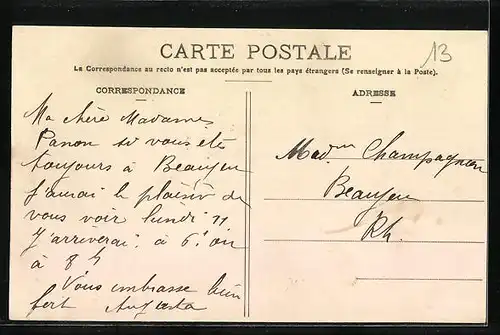 CARTE POSTALE
13
La Correspondance au recto n'est pas acceptée par tous les pays étrangers (Se renseigner à la Poste).
CORRESPONDANCE
Ma chère Madame
si vous etes
toujours à Beaujeu
j'aurai le plaisir de
vous voir lundi 11
J'arriverai à 6h ou
à 8h
Vous embrasse bien
fort Augusta
ADRESSE
Madme Champagnon
Beaujeu
Rh.